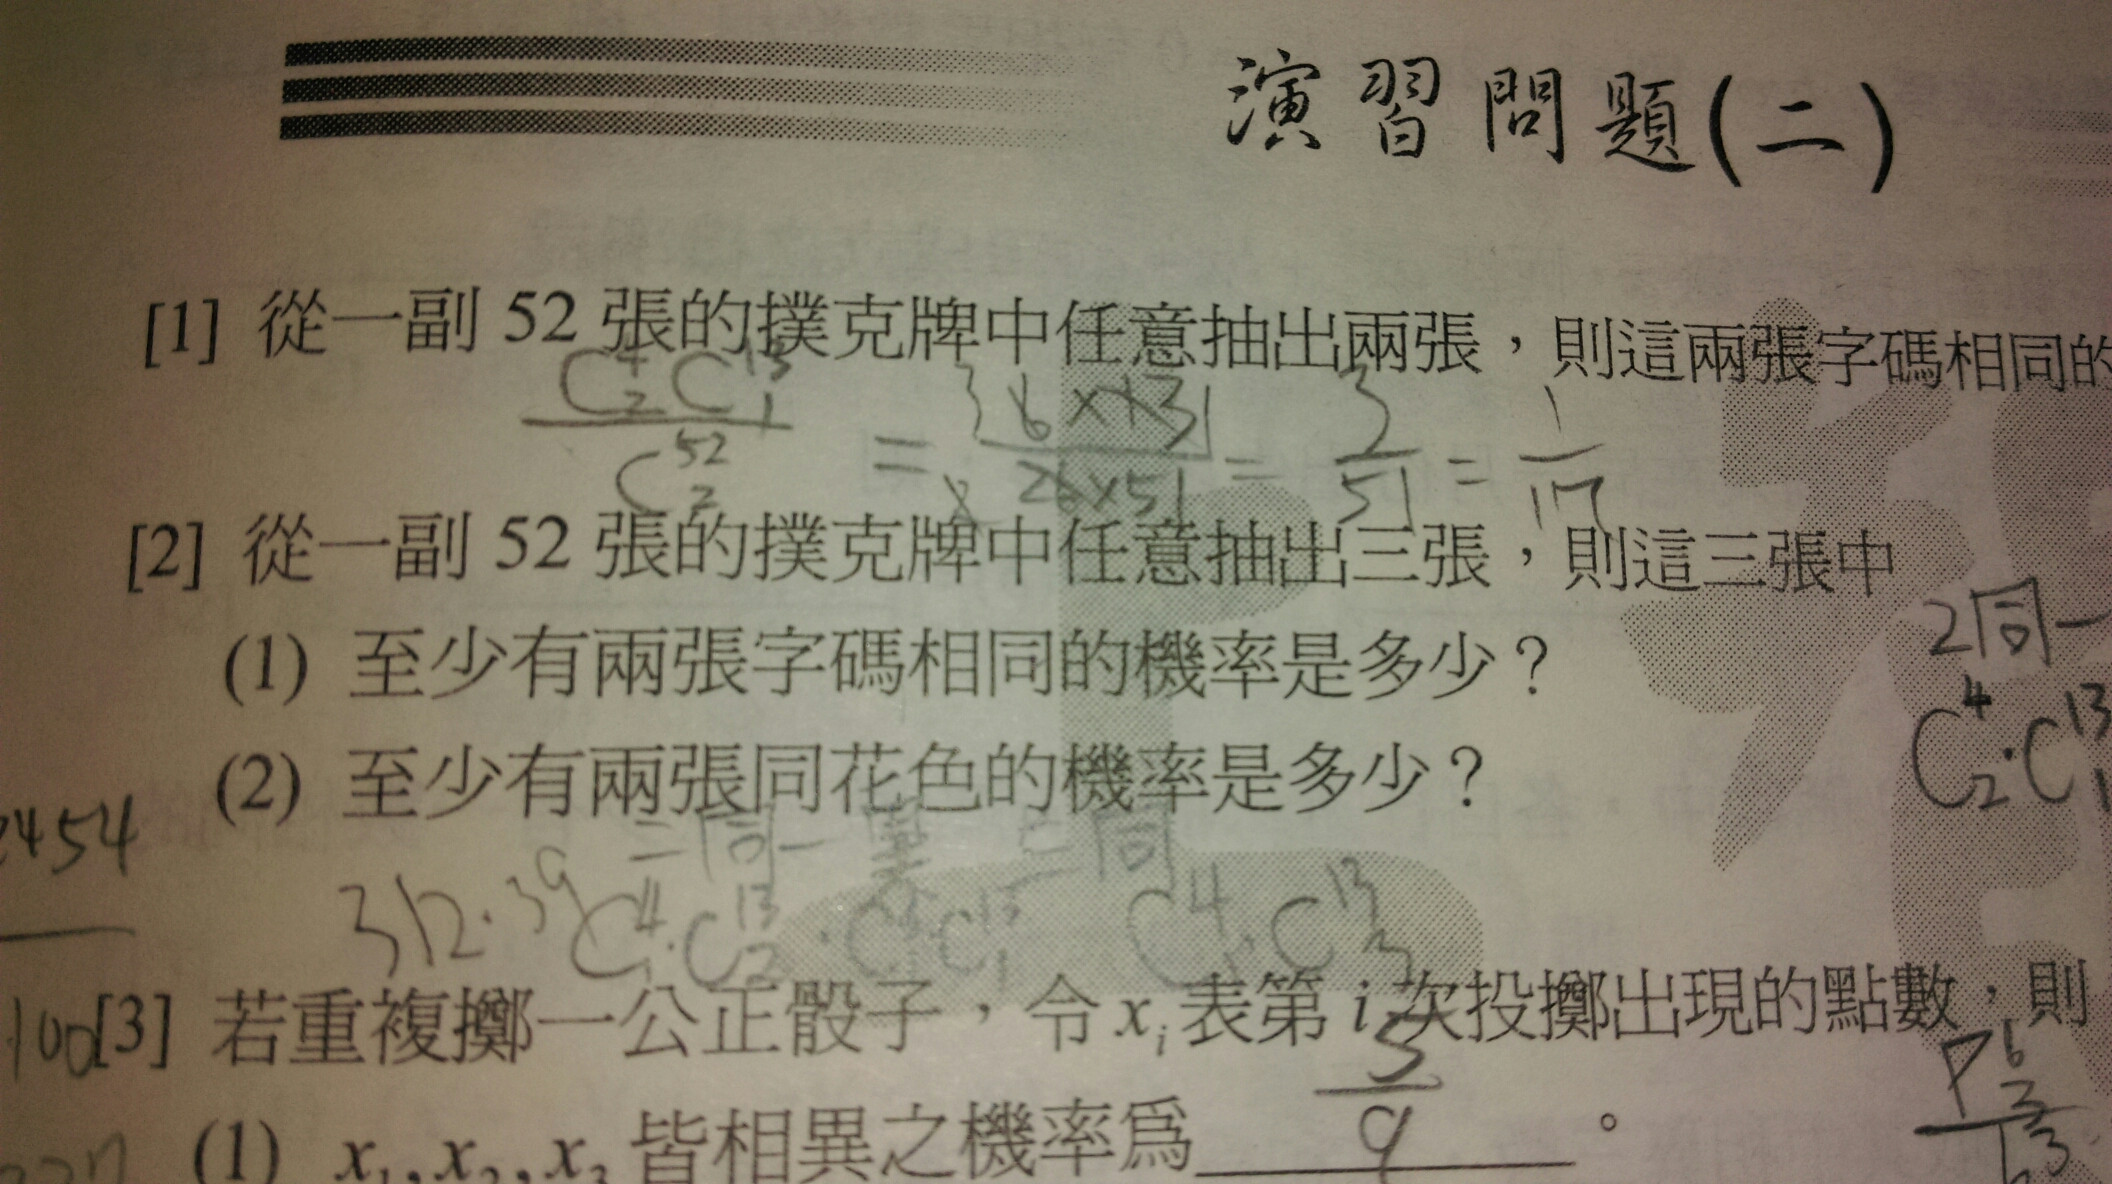 演習問題(二)
[1] 從一副 52 張的撲克牌中任意抽出兩張，則這兩張字碼相同的
C⁴₂C¹³₁ / C⁵²₂ = 6×13 / 26×51 = 3/51 = 1/17
[2] 從一副 52 張的撲克牌中任意抽出三張，則這三張中
2同一
(1) 至少有兩張字碼相同的機率是多少？
C⁴₂·C¹³₁
(2) 至少有兩張同花色的機率是多少？
454
二同一異 三同
312·39 C⁴₁·C¹³₂·C¹³₁ C⁴₁·C¹³₃
100
[3] 若重複擲一公正骰子，令 xᵢ 表第 i 次投擲出現的點數，則
(1) x₁, x₂, x₃ 皆相異之機率為 5/9 。
P⁶₃ / 6³